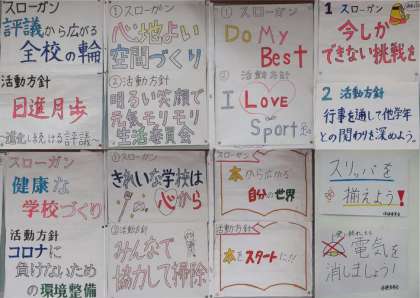 スローガン
評議から広がる
全校の輪
活動方針
日進月歩
~進化しつづける評議~
①スローガン
心地よい
空間づくり
②活動方針
明るい笑顔で
元気モリモリ
生活委員会
①スローガン
Do My
Best
② 活動方針
I LOVE
Sport
1 スローガン
今しか
できない挑戦を
2 活動方針
行事を通して他学年
との関わりを深めよう。
スローガン
健康な
学校づくり
活動方針
コロナに
負けないため
の環境整備
①スローガン
きれいな学校は
心から
②活動方針
みんなで
協力して掃除
スローガン
本から広がる
自分の世界
活動方針
本をスタートに!!
スリッパを
揃えよう!
電気を
消しましょう!